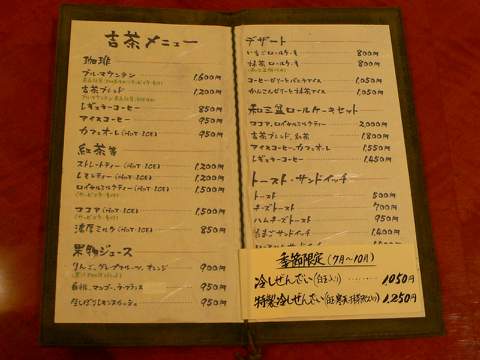 吉茶メニュー
珈琲
ブルーマウンテン 1,600円
吉茶ブレンド 1,200円
レギュラーコーヒー 850円
アイスコーヒー 950円
カフェオレ(HOT・ICE) 950円
紅茶等
ストレートティー(HOT・ICE) 1,200円
レモンティー(HOT・ICE) 1,200円
ロイヤルミルクティー(HOT・ICE) 1,500円
ココア(HOT・ICE) 1,500円
濃厚ミルク(HOT・ICE) 850円
果物ジュース
りんご、グレープフルーツ、オレンジ 900円
白桃、マンゴー、ラ・フランス 950円
生しぼりレモンスカッシュ 950円
デザート
いちごロールケーキ 800円
抹茶ロールケーキ 800円
コーヒーゼリーとバニラアイス 1,050円
かんてんゼリーと抹茶アイス 1,050円
和三盆ロールケーキセット
ココア、ロイヤルミルクティー 2,000円
吉茶ブレンド、紅茶 1,800円
アイスコーヒー、カフェオレ 1,550円
レギュラーコーヒー 1,450円
トースト・サンドイッチ
トースト 500円
チーズトースト 700円
ハムチーズトースト 950円
たまごサンドイッチ 1,400円
季節限定(7月〜10月)
冷しぜんざい(白玉入り) 1,050円
特製冷しぜんざい 1,250円